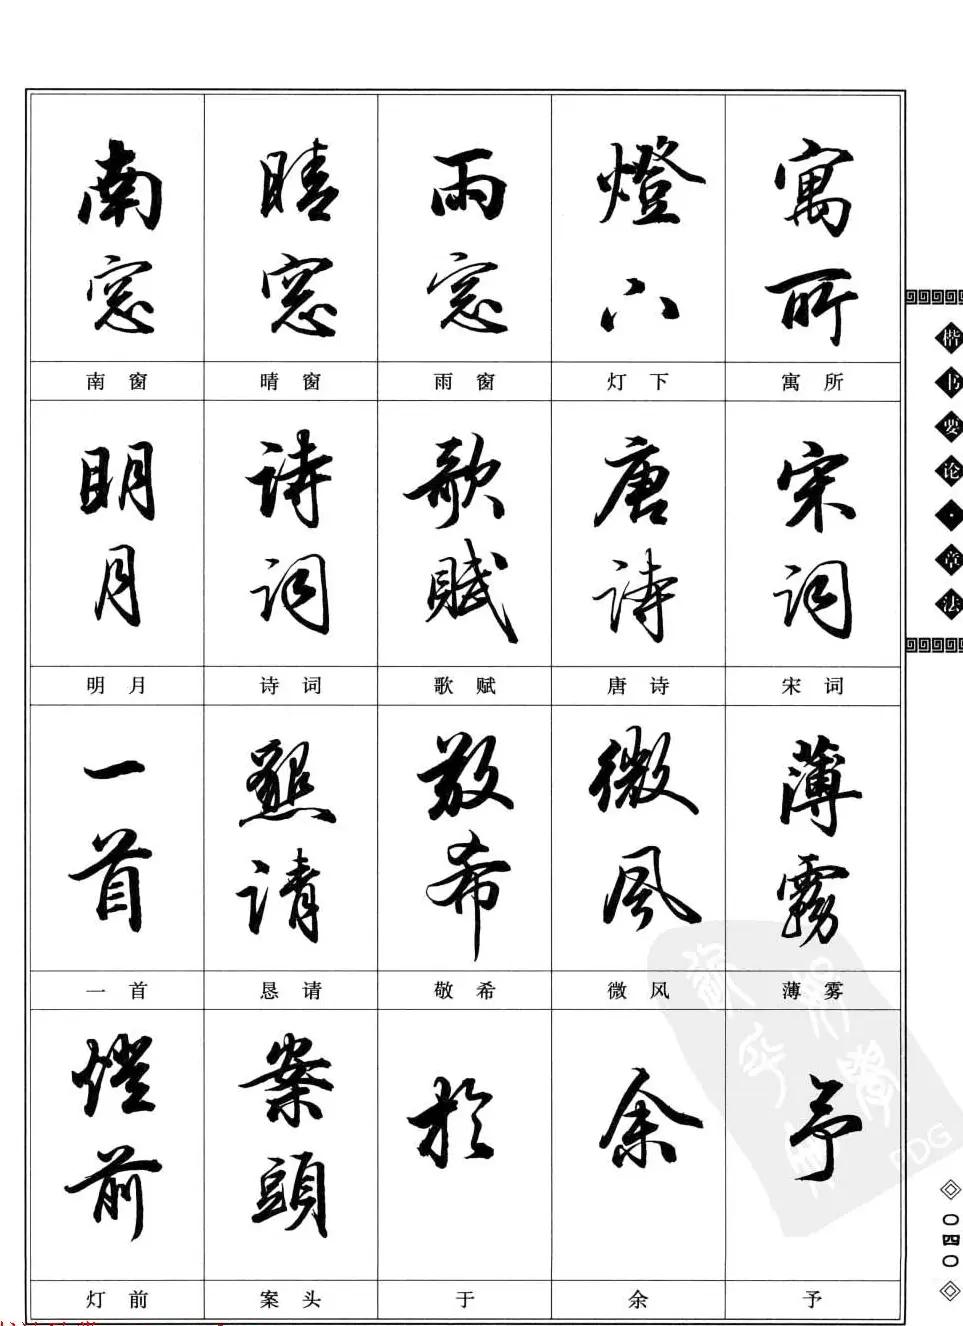 南窓 晴窓 雨窓 燈下 寓所
南窗 晴窗 雨窗 灯下 寓所
明月 詩詞 歌賦 唐詩 宋詞
明月 诗词 歌赋 唐诗 宋词
一首 懇請 敬希 微風 薄霧
一首 恳请 敬希 微风 薄雾
燈前 案頭 於 余 予
灯前 案头 于 余 予
楷书要论·章法
〇四〇
FDG